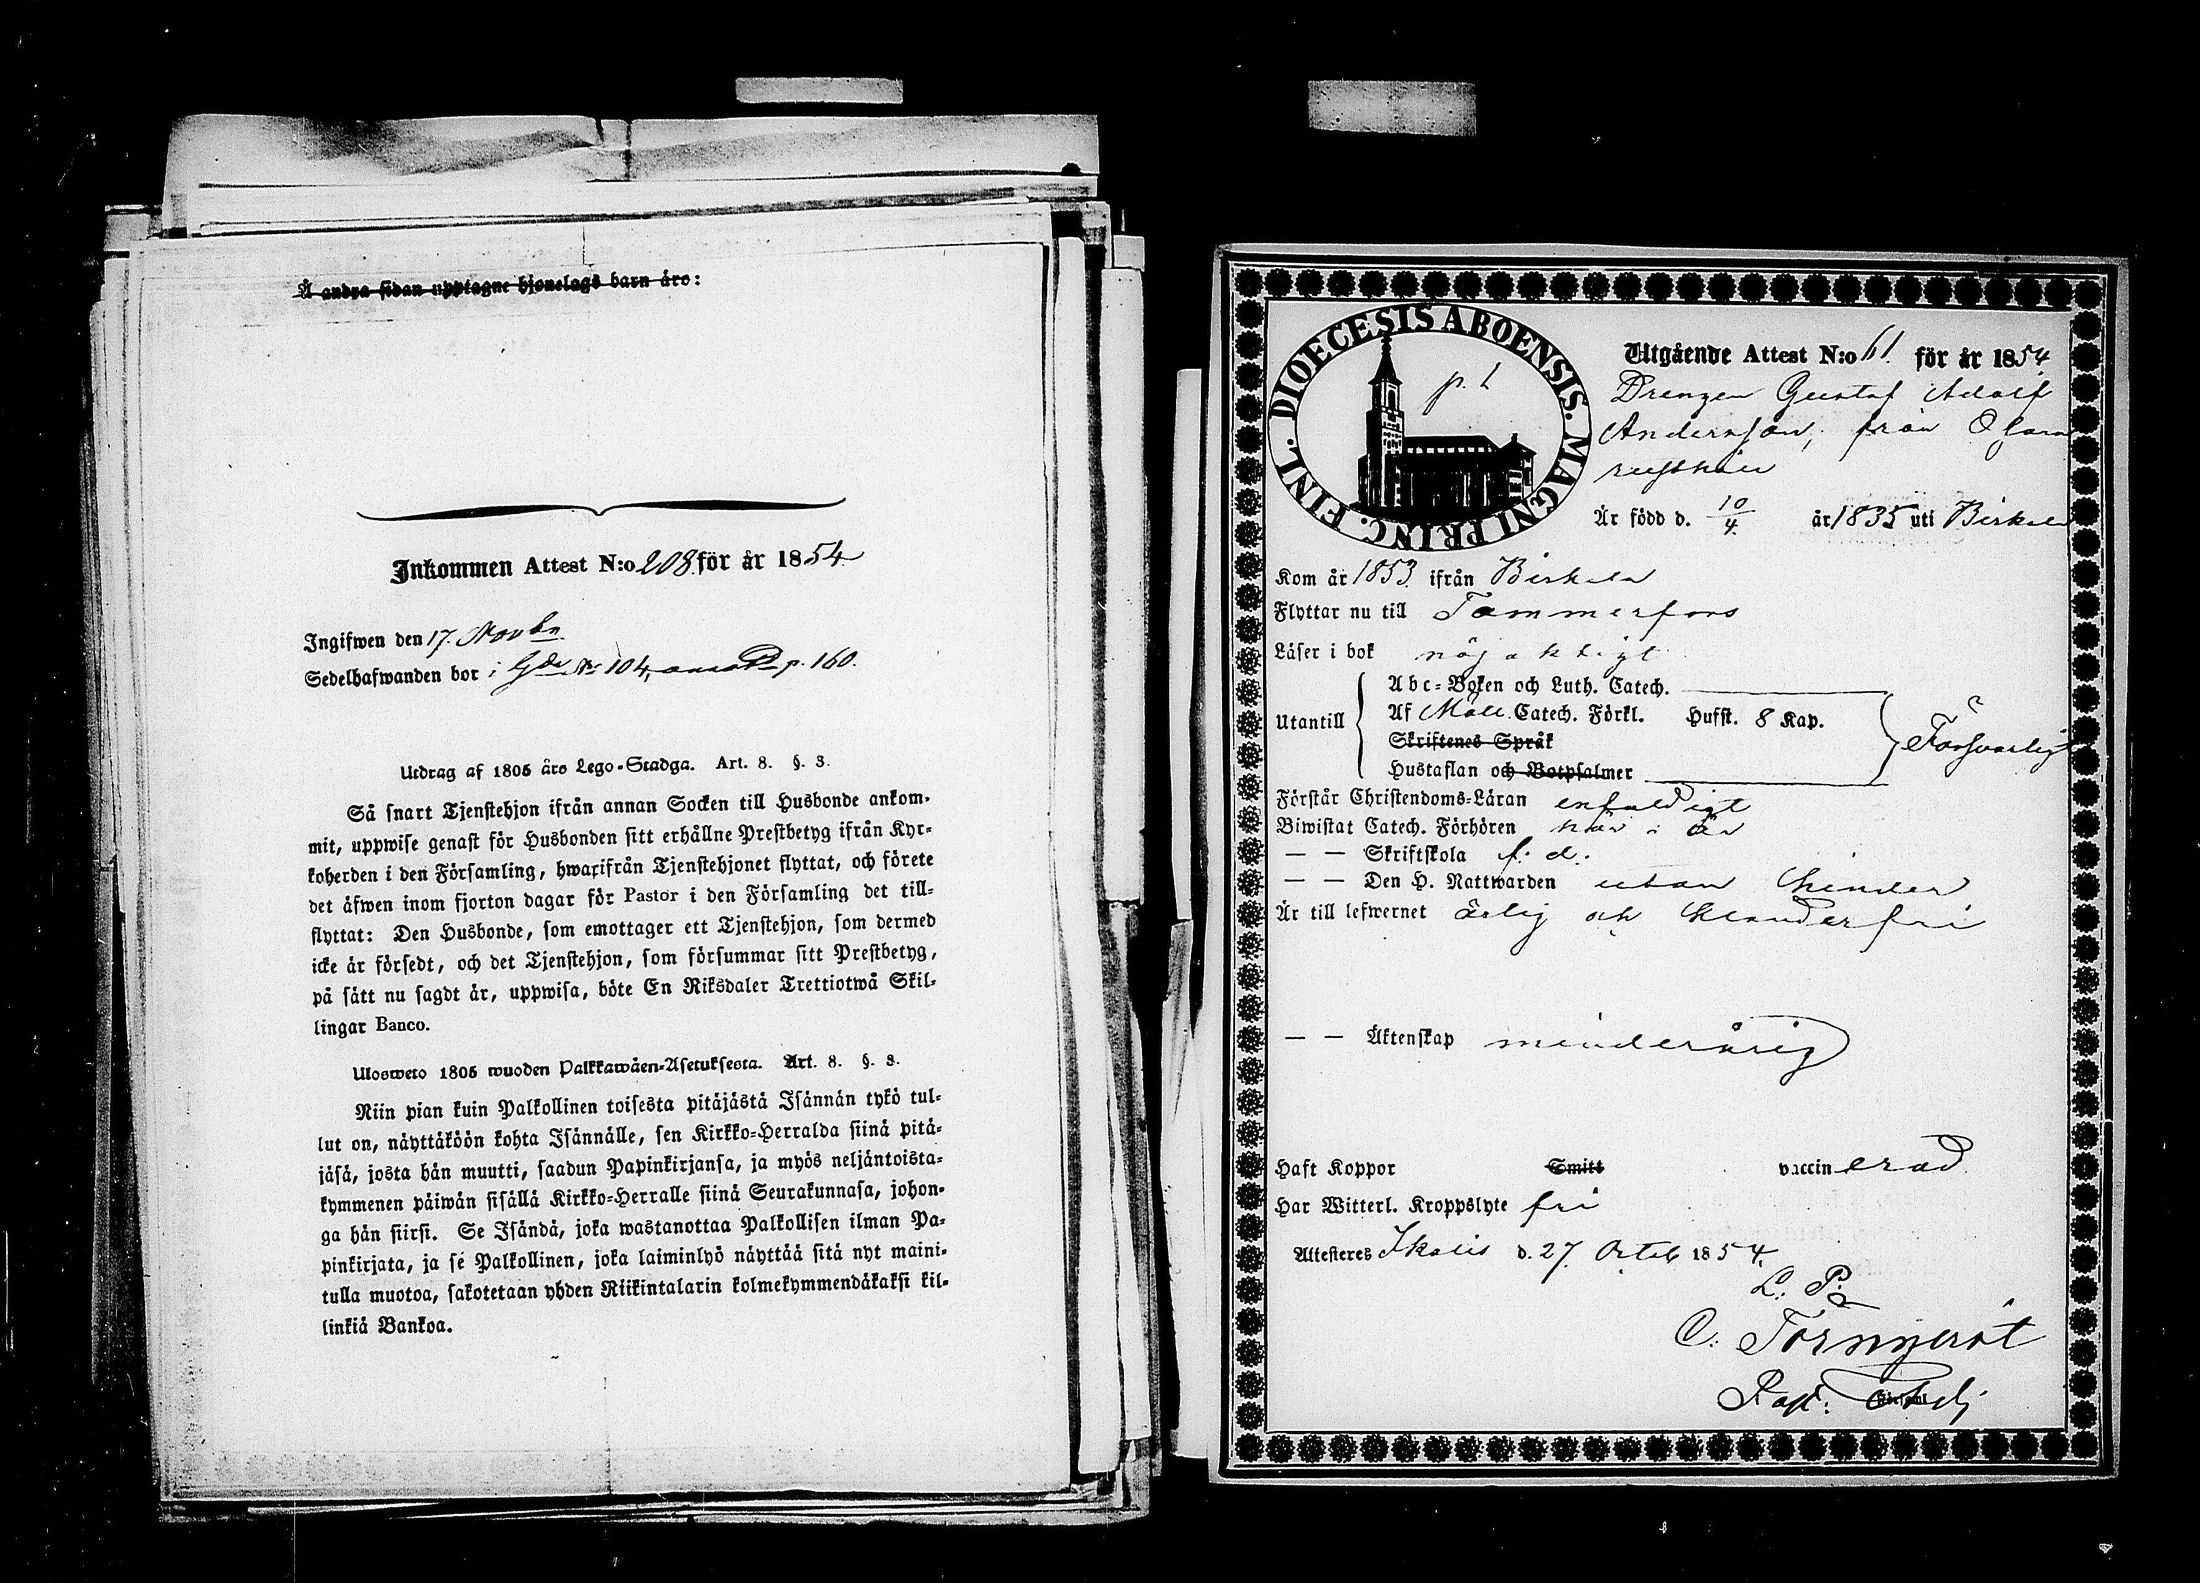 Å andra sidan upptagne hjonelags barn äro:
Inkommen Attest N:o 208 för år 1854
Ingifwen den 17. Novbr
Sedelhafwanden bor i Gdn No 104, p. 160.
Utdrag af 1805 års Lego-Stadga. Art. 8. §. 3.
Så snart Tjenstehjon ifrån annan Socken till Husbonde ankom-
mit, uppwise genast för Husbonden sitt erhållne Prestbetyg ifrån Kyr-
koherden i den Församling, hwarifrån Tjenstehjonet flyttat, och förete
det äfwen inom fjorton dagar för Pastor i den Församling det till-
flyttat: Den Husbonde, som emottager ett Tjenstehjon, som dermed
icke är försedt, och det Tjenstehjon, som försummar sitt Prestbetyg,
på sätt nu sagdt är, uppwisa, böte En Riksdaler Trettiotwå Skil-
lingar Banco.
Ulosweto 1805 wuoden Palkkawäen-Asetuksesta. Art. 8. §. 3.
Niin pian kuin Palkollinen toisesta pitäjästä Isännän tykö tul-
lut on, näyttäköön kohta Isännälle, sen Kirkko-Herralda siinä pitä-
jäsä, josta hän muutti, saadun Papinkirjansa, ja myös neljäntoista-
kymmenen päiwän sisällä Kirkko-Herralle siinä Seurakunnasa, johon-
ga hän siirsi. Se Isändä, joka wastanottaa Palkollisen ilman Pa-
pinkirjata, ja se Palkollinen, joka laiminlyö näyttää sitä nyt maini-
tulla muotoa, sakotetaan yhden Riikintalarin kolmekymmendäkaksi kil-
linkiä Bankoa.
DIOECESIS ABOENSIS. MAGNI PRINC. FINL.
p. 1
Utgående Attest N:o 61. för år 1854
Drengen Gustaf Adolf
Andersson, från Osara
rusthåll
Är född d. 10/4 år 1835 uti Birkala
Kom år 1853 ifrån Birkala
Flyttar nu till Tammerfors
Läser i bok nöjaktigt
Utantill
Abc-Boken och Luth. Catech.
Af Möll. Catech. Förkl. Husst. 8 Kap.
Skriftenes Språk
Hustaflan och Botpsalmer
Försvarligt
Förstår Christendoms-Läran enfaldigt
Biwistat Catech. Förhören här i år
— — Skriftskola f. d.
— — Den H. Nattwarden utan hinder
Är till lefwernet ärlig och klanderfri
— — Äktenskap minderårig
Haft Koppor Smitt vaccinerad
Har Witterl. Kroppslyte fri
Attesteres Ikalis d. 27. Octob 1854.
L. P.
C. Törnqvist
Past. Adj